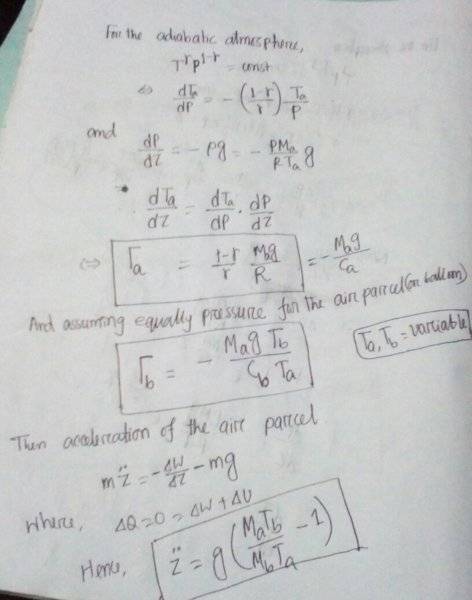 For the adiabatic atmosphere,
T^r P^1-r = const
⇔ dTa/dP = -(1-r/r) Ta/P
and dP/dZ = -ρg = - PMa/RTa g
• dTa/dZ = dTa/dP · dP/dZ
⇔ Γa = 1-r/r Mag/R = - Mag/Ca
And assuming equally pressure for the air parcel (or balloon)
Γb = - Mag Tb/Cb Ta
Ta, Tb = variable
Then acceleration of the air parcel
mz̈ = - ΔW/ΔZ - mg
Where, ΔQ=0 = ΔW + ΔU
Hence, z̈ = g(MaTb/MbTa - 1)